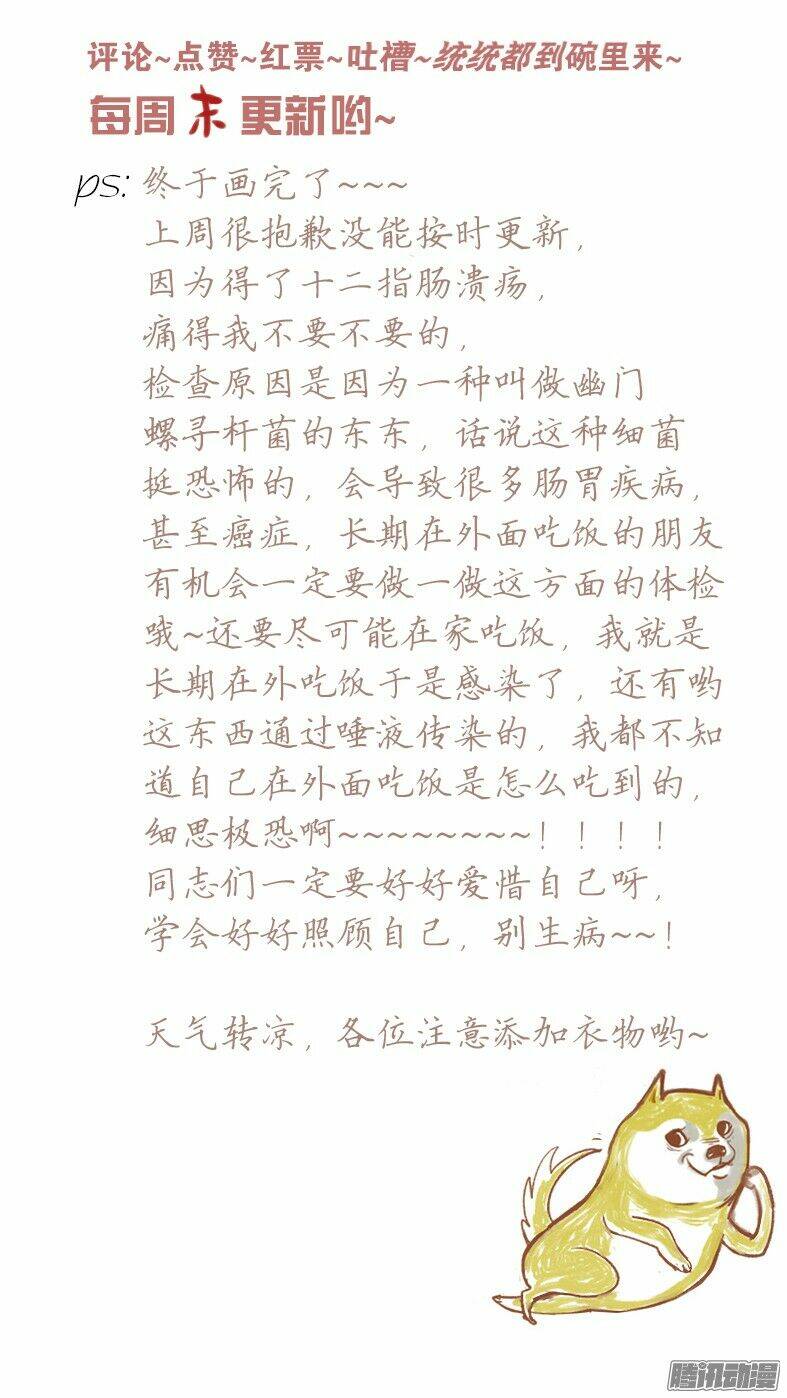 评论~点赞~红票~吐槽~统统都到碗里来~
每周末更新哟~
ps: 终于画完了~~~
上周很抱歉没能按时更新,
因为得了十二指肠溃疡,
痛得我不要不要的,
检查原因是因为一种叫做幽门
螺寻杆菌的东东, 话说这种细菌
挺恐怖的, 会导致很多肠胃疾病,
甚至癌症, 长期在外面吃饭的朋友
有机会一定要做一做这方面的体检
哦~还要尽可能在家吃饭, 我就是
长期在外吃饭于是感染了, 还有哟
这东西通过唾液传染的, 我都不知
道自己在外面吃饭是怎么吃到的,
细思极恐啊~~~~~~~~!!!!
同志们一定要好好爱惜自己呀,
学会好好照顾自己, 别生病~~!
天气转凉, 各位注意添加衣物哟~
腾讯动漫